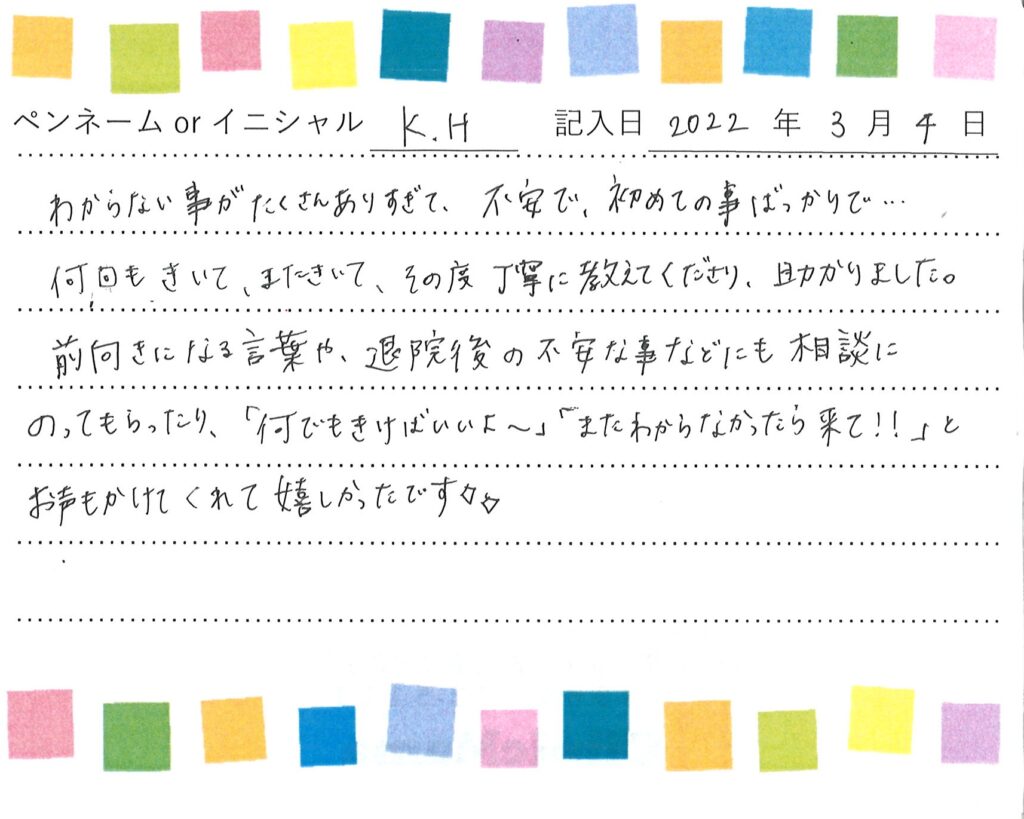 ペンネーム or イニシャル K.H 記入日 2022 年 3 月 4 日
わからない事がたくさんありすぎて、不安で、初めての事ばっかりで…
何回もきいて、またきいて、その度丁寧に教えてくださり、助かりました。
前向きになる言葉や、退院後の不安な事などにも相談に
のってもらったり、「何でもきけばいいよ～」「またわからなかったら来て!!」と
お声もかけてくれて嬉しかったです◇◇